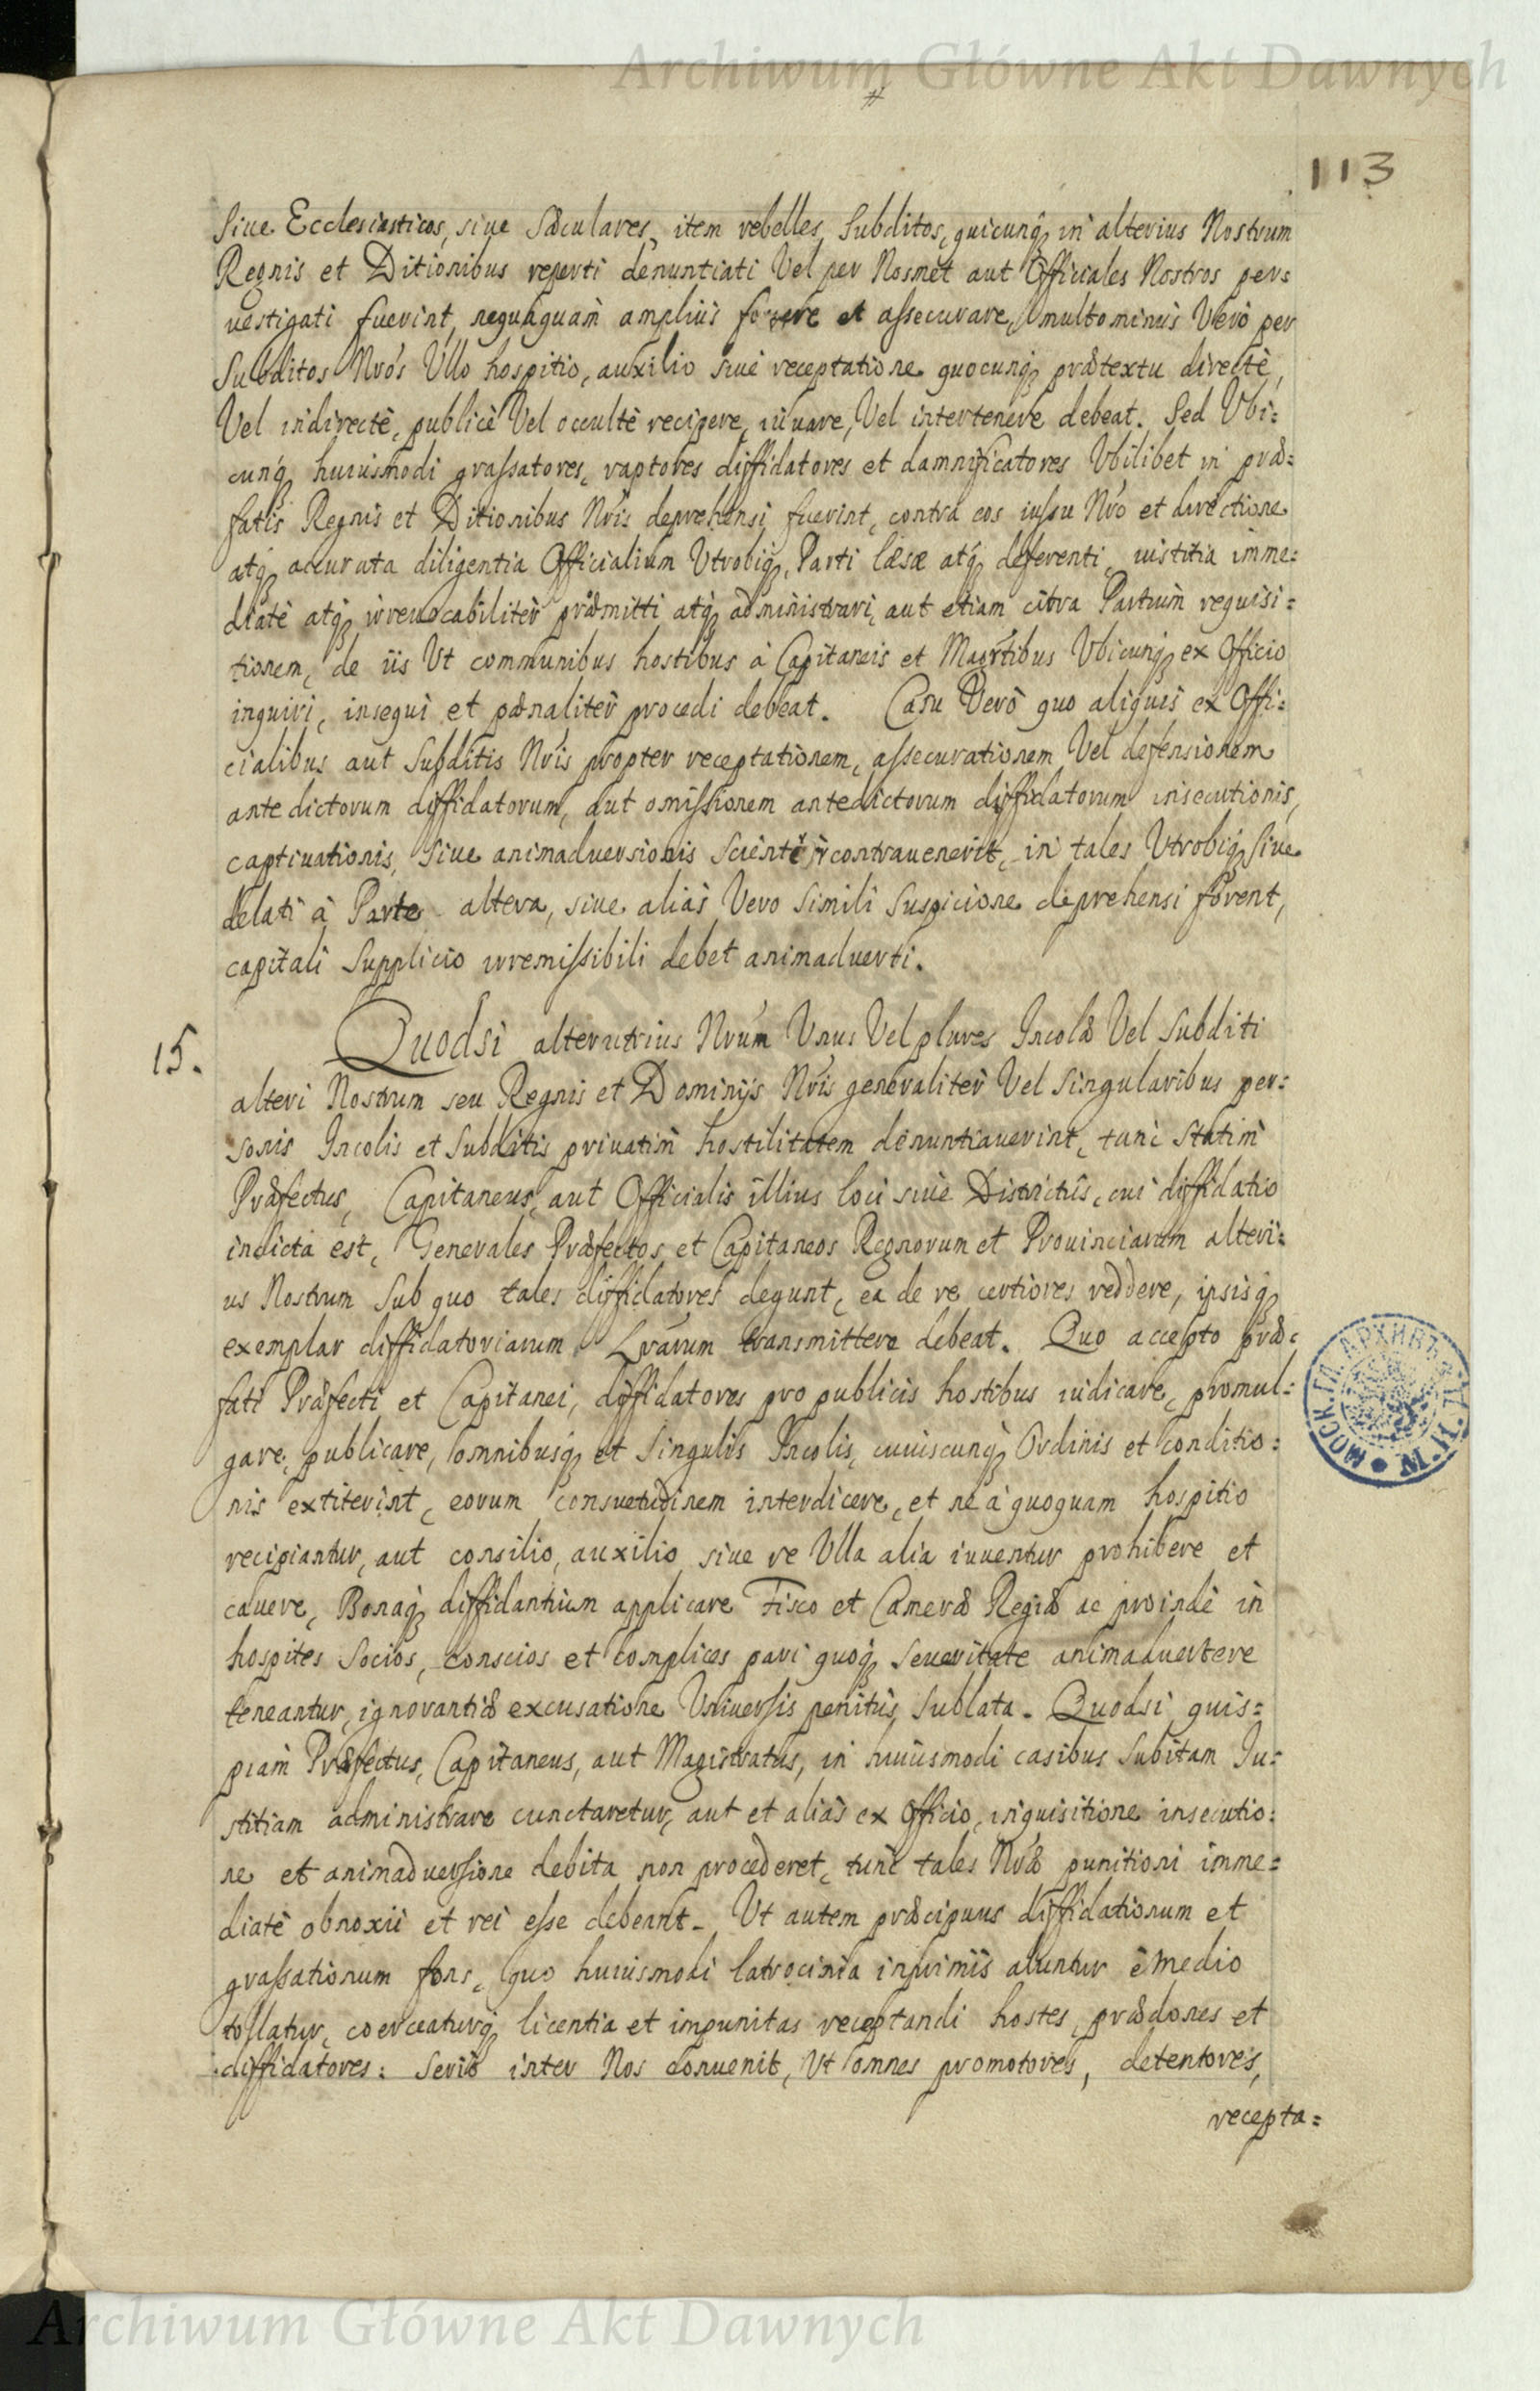 Archiwum Główne Akt Dawnych
#
113
siue Ecclesiasticos, siue Sæculares, item rebelles Subditos, quicunq̃ in alterius Nostrum
Regnis et Ditionibus reperti denuntiati Vel per Nosmet aut Officiales Nostros per=
uestigati fuerint, nequaquam amplius fouere et assecurare, multominus Vero per
Subditos Nros Ullo hospitio, auxilio siue receptatione quocunq̃ prætextu directè,
Vel indirectè, publicè Vel occultè recipere, iuuare, Vel intertenere debeat. Sed Vbi=
cunq̃ huiusmodi grassatores, raptores diffidatores et damnificatores Vbilibet in præ=
fatis Regnis et Ditionibus Nris deprehensi fuerint, contra eos iussu Nro et directione
atq̃ accurata diligentia Officialium Vtrobiq̃, Parti læsæ atq̃ deferenti, iustitia imme=
diatè atq̃ irreuocabiliter præmitti atq̃ administrari, aut etiam citra Partium requisi=
tionem, de iis Vt communibus hostibus à Capitaneis et Magrtibus Vbicunq̃ ex Officio
inquiri, insequi et pœnaliter procedi debeat. Casu Verò quo aliquis ex Offi=
cialibus aut Subditis Nris propter receptationem, assecurationem Vel defensionem
ante dictorum diffidatorum, aut omissionem antedictorum diffidatorum insecutionis,
captiuationis, siue animaduersionis scienter contrauenerit, in tales Vtrobiq̃ siue
delati à Parte altera, siue aliàs Vero simili Suspicione deprehensi forent,
capitali Supplicio irremissibili debet animaduerti.
15. Quodsi alterutrius Nrum Vnus Vel plures Incolæ Vel Subditi
alteri Nostrum seu Regnis et Dominijs Nris generaliter Vel Singularibus per=
sonis Incolis et Subditis priuatim hostilitatem denuntiauerint, tunc Statim
Præfectus, Capitaneus, aut Officialis illius loci siue Districtûs, cui diffidatio
indicta est, Generales Præfectos et Capitaneos Regnorum et Prouinciarum alteri=
us Nostrum Sub quo tales diffidatores degunt, ea de re certiores reddere, ipsisq̃
exemplar diffidatoriarum Lrarum transmittere debeat. Quo accepto præ=
fati Præfecti et Capitanei, diffidatores pro publicis hostibus iudicare, promul=
gare, publicare, omnibusq̃ et Singulis Incolis, cuiuscunq̃ Ordinis et conditio=
nis extiterint, eorum consuetudinem interdicere, et ne à quoquam hospitio
recipiantur, aut consilio, auxilio siue re Ulla alia iuuentur prohibere et
cauere, Bonaq̃ diffidantium applicare Fisco et Cameræ Regiæ ac proindè in
hospites Socios, conscios et complices pari quoq̃ Seueritate animaduertere
teneantur, ignorantiæ excusatione Vniuersis penitùs Sublata. Quodsi quis=
piam Præfectus, Capitaneus, aut Magistratus, in huiusmodi casibus Subitam Iu=
stitiam administrare cunctaretur, aut et aliàs ex Officio, inquisitione insecutio=
ne et animaduersione debita non procederet, tunc tales Nræ punitioni imme=
diatè obnoxii et rei esse debeant. Vt autem præcipuus diffidationum et
grassationum fons, quo huiusmodi latrocinia inprimis aluntur è medio
tollatur, coerceaturq̃ licentia et impunitas receptandi hostes, prædones et
diffidatores: Seriò inter Nos conuenit, Vt omnes promotores, detentores,
recepta=
МОСК. ГЛ. АРХИВЪ М. И. Д.
Archiwum Główne Akt Dawnych